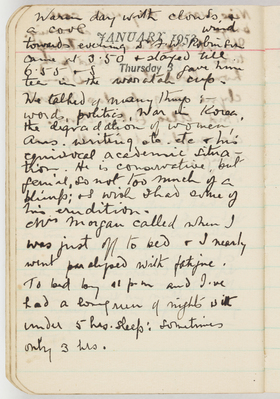 Warm day with clouds, &
a cool wind
JANUARY 1952
towards evening. Robinson
came at 3.50 & stayed till
Thursday 3
6.50 - & gave him
tea in the cup.
We talked of many things:
word, politics, War in Korea,
the degradation of women,
Aus. writing, etc. etc & his
equivocal academic situa-
tion. He is conservative, but
genial, so not too much of a
blimp; & I wish I had some of
his erudition.
Mrs Morgan called when I
was just off to bed & I nearly
went paralysed with fatigue.
To bed by 11 pm and I've
had a long run of nights
under 5 hrs. sleep: sometimes
only 3 hrs.